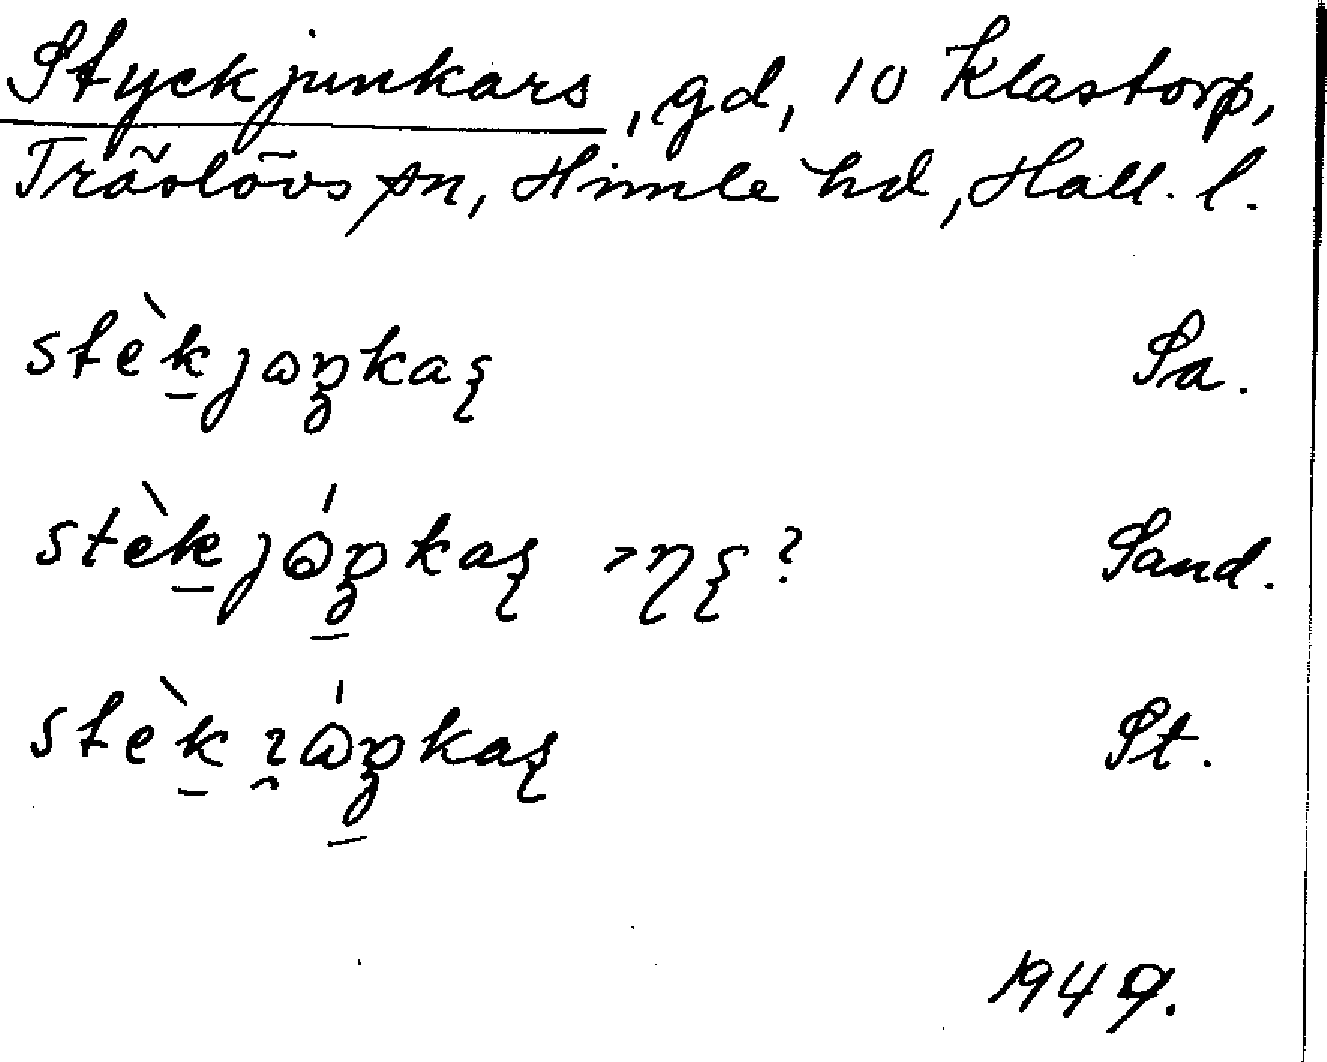 Styckjunkars, gd, 10 Klastorp,
Träslövs sn, Himle hd, Hall. l.
stèk̠jɷŋkaʂ Sa.
stèk̠jɷ́ŋ̠kaʂ -ηʂ? Sand.
stèk̠ɿ̯ɷ́ŋ̠kaʂ St.
1949.